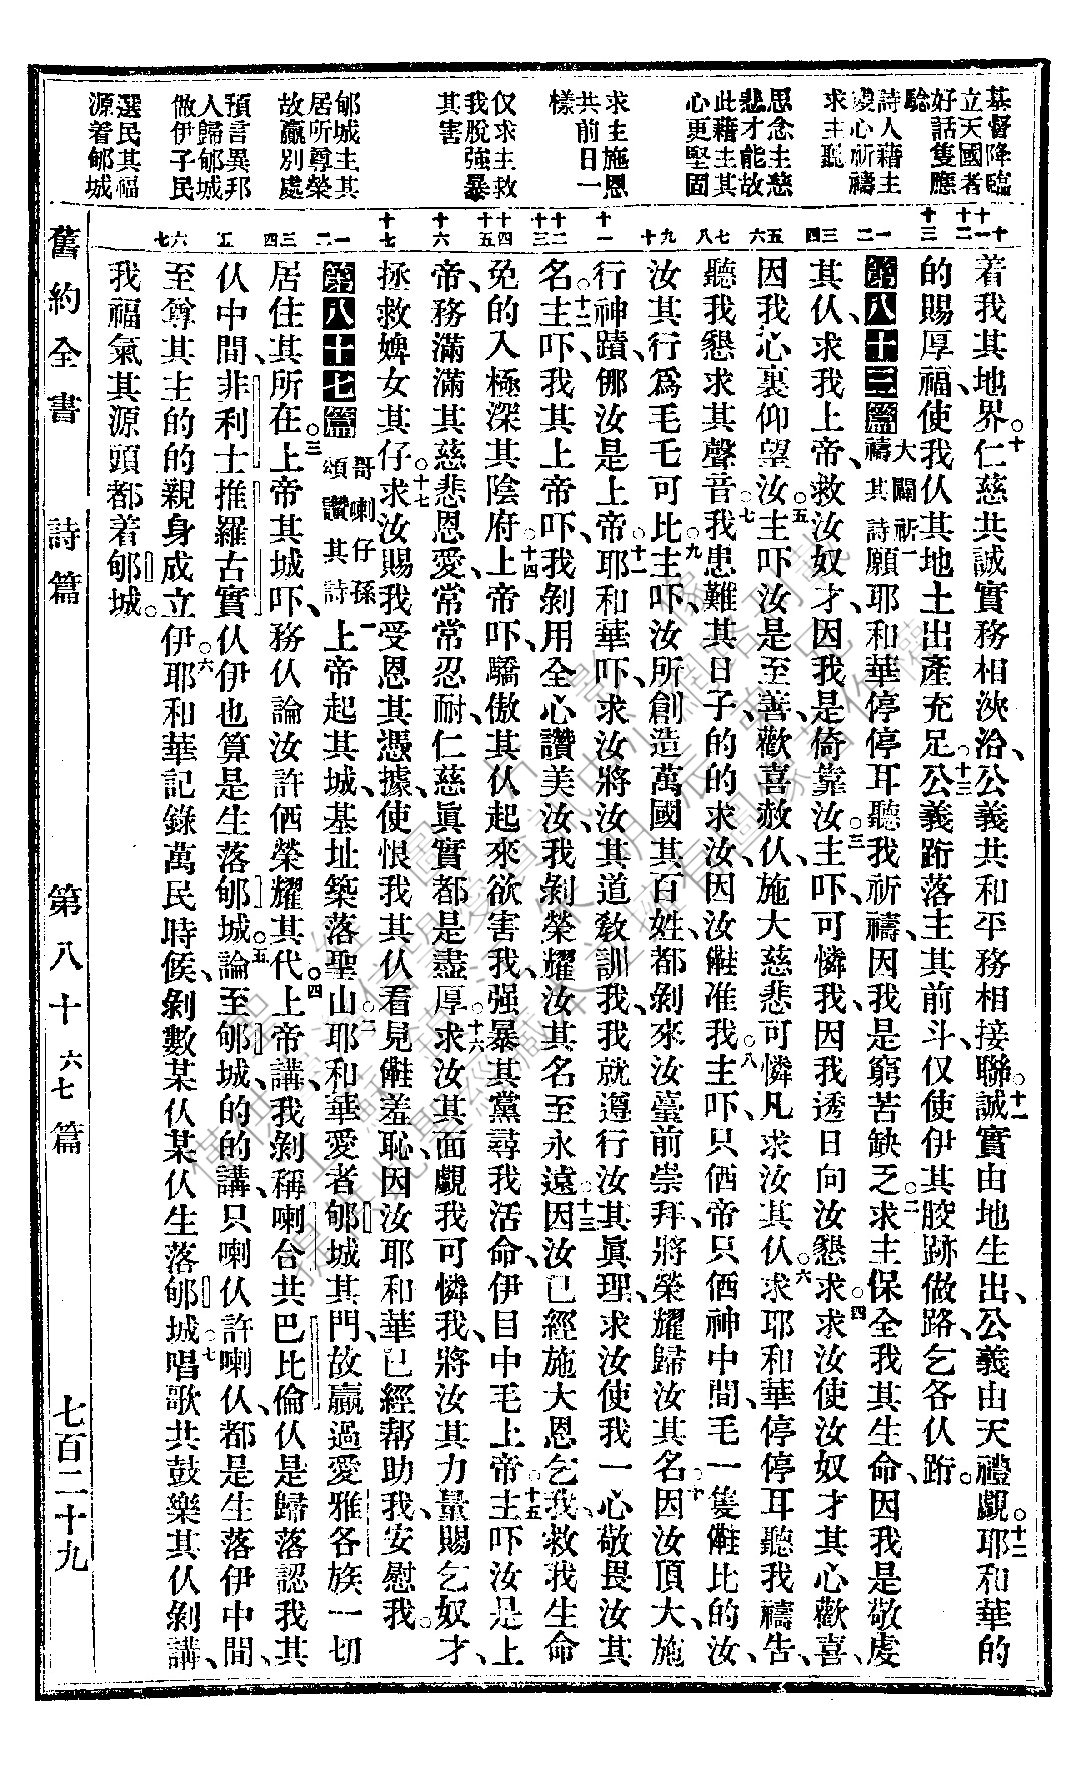 基督降臨
立天國者
好話隻應
驗
詩人藉主
虔心祈禱
求主聽
思念主慈
悲才能故
此藉主其
心更堅固
求主施恩
共前日一
樣
仅求主救
我脫強暴
其害
郇城主其
居所尊榮
故贏別處
預言異邦
人歸郇城
做伊子民
選民其福
源着郇城
着我其地界。十仁慈共誠實務相浹洽、公義共和平務相接聯。十一誠實由地生出、公義由天禮覷。十二耶和華的
的賜厚福、使我仈其地土出產充足。十三公義跻落主其前斗、仅使伊其骹跡做路、乞各仈跻。
第八十三篇 大闢祈禱其詩 一願耶和華停停耳聽我祈禱、因我是窮苦缺乏。二求主保全我其生命、因我是敬虔
其仈、求我上帝、救汝奴才、因我是倚靠汝。三主吓、可憐我、因我透日向汝懇求。四求汝使汝奴才其心歡喜、
因我心裏仰望汝。五主吓、汝是至善、歡喜赦仈、施大慈悲可憐凡求汝其仈。六求耶和華停停耳聽我禱告、
聽我懇求其聲音。七我患難其日子、的的求汝、因汝𣍐准我。八主吓、只佰帝只佰神中間、毛一隻𣍐比的汝、
汝其行爲毛毛可比。九主吓、汝所創造萬國其百姓、都剝來汝臺前崇拜、將榮耀歸汝其名。十因汝頂大、施
行神蹟、㑚汝是上帝。十一耶和華吓、求汝將汝其道敎訓我、我就遵行汝其眞理、求汝使我一心敬畏汝其
名。十二主吓、我其上帝吓、我剝用全心讚美汝、我剝榮耀汝其名至永遠。十三因汝已經施大恩乞我、救我生命
免的入極深其陰府。十四上帝吓、驕傲其仈起來欲害我、强暴其黨尋我活命、伊目中毛上帝。十五主吓、汝是上
帝、務滿滿其慈悲恩愛、常常忍耐、仁慈眞實都是盡厚。十六求汝其面覷我可憐我、將汝其力量賜乞奴才、
拯救婢女其仔。十七求汝賜我受恩其憑據、使恨我其仈看見𣍐羞恥、因汝耶和華已經幇助我、安慰我。
第八十七篇 哥喇仔孫頌讚其詩 一上帝起其城、基址築落聖山。二耶和華愛者郇城其門、故贏過愛雅各族一切
居住其所在。三上帝其城吓、務仈論汝許佰榮耀其代。四上帝講、我剝稱喇合共巴比倫仈、是歸落認我其
仈中間、非利士推羅古實仈、伊也算是生落郇城。五論至郇城、的的講、只喇仈許喇仈、都是生落伊中間、
至尊其主的的親身成立伊。六耶和華記錄萬民時候、剝數某仈某仈生落郇城。七唱歌共鼓樂其仈剝講、
我福氣其源頭都着郇城。
舊約全書　詩篇　第八十六七篇　七百二十九